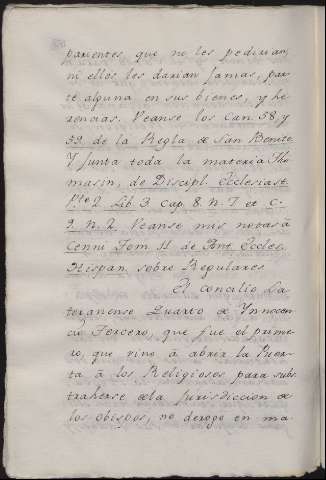 parientes, que no les pedirian,
ni ellos les darian jamas, par
te alguna en sus bienes, y he
rencias. Veanse los Can. 58 y
59. de la Regla de San Benito
Y junta toda la materia Tho
masin, de Discipl. Ecclesiast.
Pte. 2. Lib. 3. Cap. 8. N. 7. et C.
9. N. 2. Veanse mis notas à
Cenni Tom. II. de Ant. Eccles.
Hispan. sobre Regulares
El concilio La
teranense Quarto de Ynnocen
cio Tercero, que fue el prime
ro, que vino à abrir la Puer
ta à los Religiosos para subs
traherse de la Jurisdiccion de
los obispos, no derogo en ma